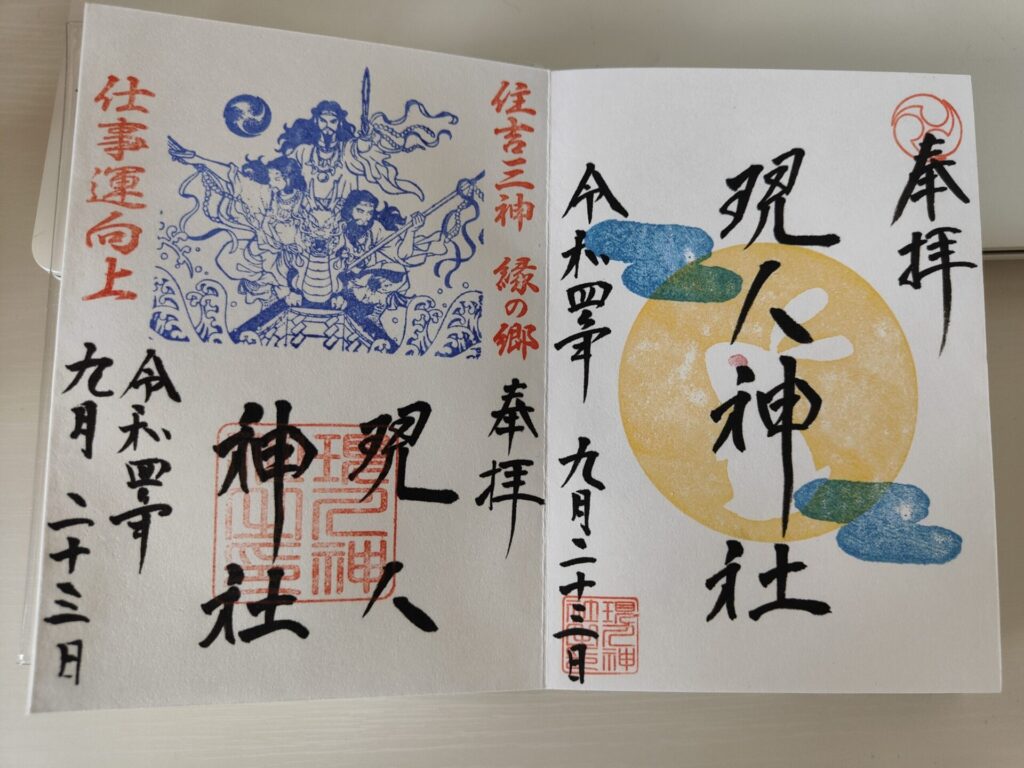 奉拝
現人神社
令和四年 九月二十三日
現人神社之印
住吉三神 縁の郷
仕事運向上
奉拝
現人
神社
令和四年
九月 二十三日
現人神
社之印